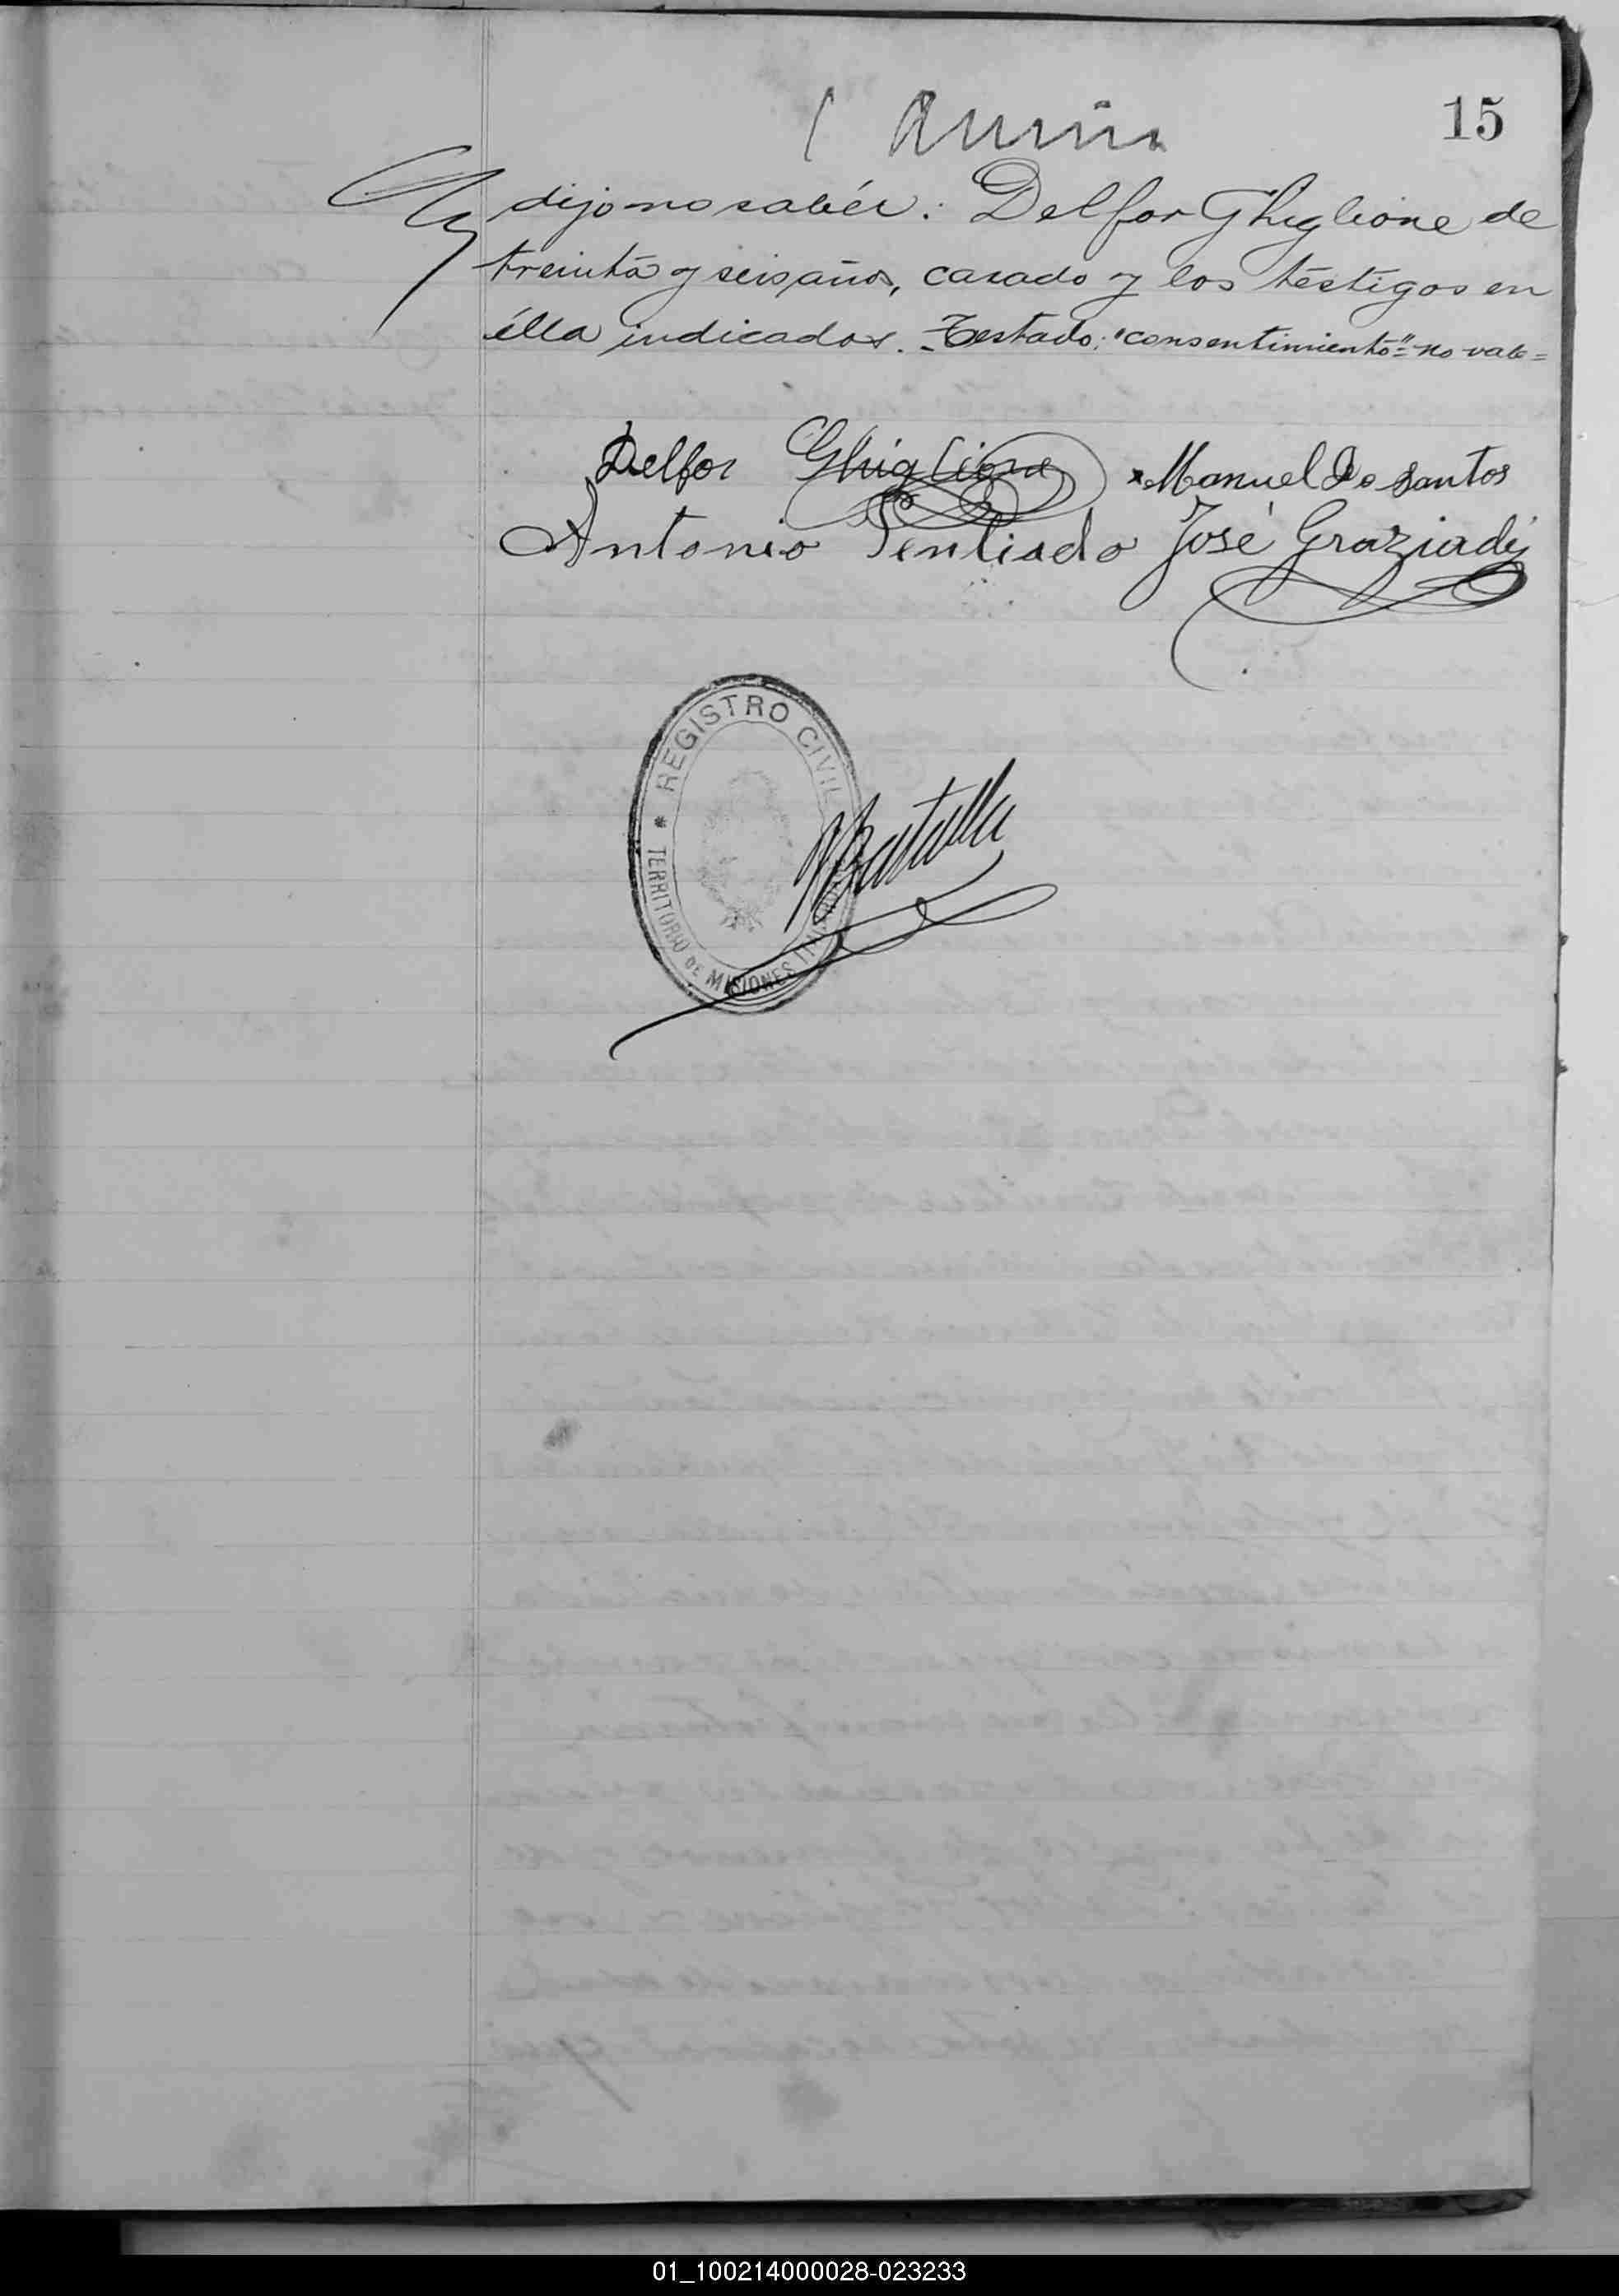 15
dijo no sabér: Delfor Ghiglione de
treinta y seis años, casado y los testigos en
élla indicados. Testado: "consentimiento" = no vale =
Delfor Ghiglione Manuel Do Santos
Antonio Penliado José Graziadij
REGISTRO CIVIL
TERRITORIO DE MISIONES
01_100214000028-023233